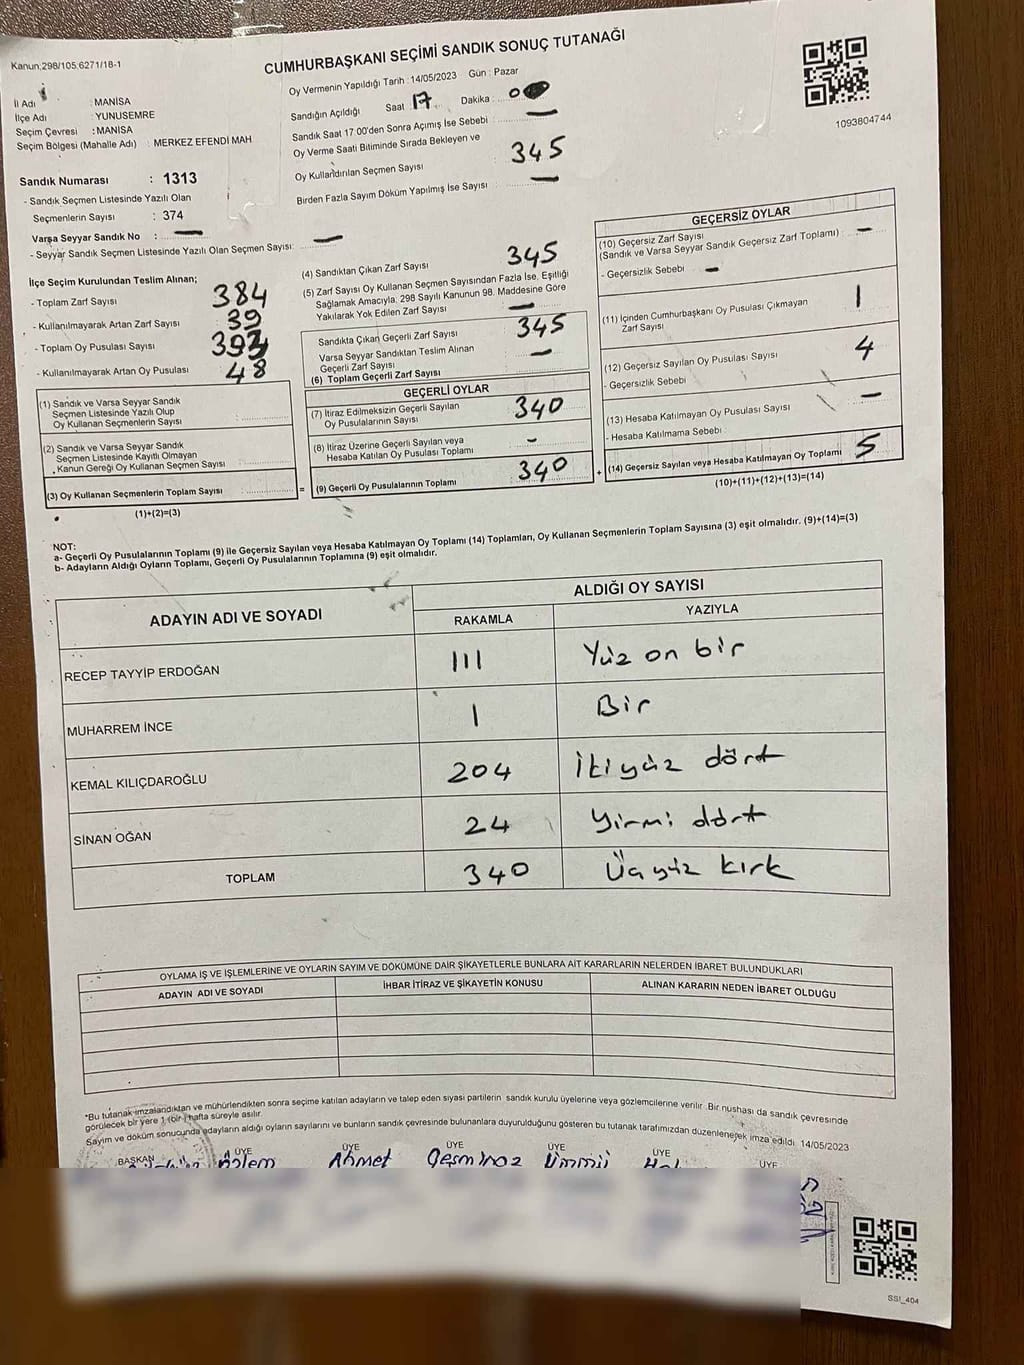 Kanun:298/105;6271/18-1
CUMHURBAŞKANI SEÇİMİ SANDIK SONUÇ TUTANAĞI
1093804744
İl Adı : MANİSA
İlçe Adı : YUNUSEMRE
Seçim Çevresi : MANİSA
Seçim Bölgesi (Mahalle Adı) : MERKEZ EFENDİ MAH
Sandık Numarası : 1313
- Sandık Seçmen Listesinde Yazılı Olan
Seçmenlerin Sayısı : 374
Varsa Seyyar Sandık No : —
- Seyyar Sandık Seçmen Listesinde Yazılı Olan Seçmen Sayısı: —
Oy Vermenin Yapıldığı Tarih : 14/05/2023 Gün : Pazar
Sandığın Açıldığı Saat 17 Dakika 0
Sandık Saat 17.00'den Sonra Açımış İse Sebebi : —
Oy Verme Saati Bitiminde Sırada Bekleyen ve
Oy Kullandırılan Seçmen Sayısı : 345
Birden Fazla Sayım Döküm Yapılmış İse Sayısı : —
İlçe Seçim Kurulundan Teslim Alınan;
- Toplam Zarf Sayısı 384
- Kullanılmayarak Artan Zarf Sayısı 39
- Toplam Oy Pusulası Sayısı 393
- Kullanılmayarak Artan Oy Pusulası 48
(1) Sandık ve Varsa Seyyar Sandık
Seçmen Listesinde Yazılı Olup
Oy Kullanan Seçmenlerin Sayısı :
(2) Sandık ve Varsa Seyyar Sandık
Seçmen Listesinde Kayıtlı Olmayan
Kanun Gereği Oy Kullanan Seçmen Sayısı :
(3) Oy Kullanan Seçmenlerin Toplam Sayısı :
(1)+(2)=(3)
(4) Sandıktan Çıkan Zarf Sayısı : 345
(5) Zarf Sayısı Oy Kullanan Seçmen Sayısından Fazla İse, Eşitliği
Sağlamak Amacıyla, 298 Sayılı Kanunun 98. Maddesine Göre
Yakılarak Yok Edilen Zarf Sayısı : —
Sandıkta Çıkan Geçerli Zarf Sayısı : 345
Varsa Seyyar Sandıktan Teslim Alınan
Geçerli Zarf Sayısı : —
(6) Toplam Geçerli Zarf Sayısı
GEÇERLİ OYLAR
(7) İtiraz Edilmeksizin Geçerli Sayılan
Oy Pusulalarının Sayısı : 340
(8) İtiraz Üzerine Geçerli Sayılan veya
Hesaba Katılan Oy Pusulası Toplamı : -
= (9) Geçerli Oy Pusulalarının Toplamı : 340
GEÇERSİZ OYLAR
(10) Geçersiz Zarf Sayısı
(Sandık ve Varsa Seyyar Sandık Geçersiz Zarf Toplamı) : —
- Geçersizlik Sebebi : —
(11) İçinden Cumhurbaşkanı Oy Pusulası Çıkmayan
Zarf Sayısı : 1
(12) Geçersiz Sayılan Oy Pusulası Sayısı : 4
- Geçersizlik Sebebi :
(13) Hesaba Katılmayan Oy Pusulası Sayısı : —
- Hesaba Katılmama Sebebi :
+ (14) Geçersiz Sayılan veya Hesaba Katılmayan Oy Toplamı : 5
(10)+(11)+(12)+(13)=(14)
NOT:
a- Geçerli Oy Pusulalarının Toplamı (9) ile Geçersiz Sayılan veya Hesaba Katılmayan Oy Toplamı (14) Toplamları, Oy Kullanan Seçmenlerin Toplam Sayısına (3) eşit olmalıdır. (9)+(14)=(3)
b- Adayların Aldığı Oyların Toplamı, Geçerli Oy Pusulalarının Toplamına (9) eşit olmalıdır.
ADAYIN ADI VE SOYADI ALDIĞI OY SAYISI
RAKAMLA YAZIYLA
RECEP TAYYİP ERDOĞAN 111 Yüz on bir
MUHARREM İNCE 1 Bir
KEMAL KILIÇDAROĞLU 204 İkiyüz dört
SİNAN OĞAN 24 Yirmi dört
TOPLAM 340 Üçyüz kırk
OYLAMA İŞ VE İŞLEMLERİNE VE OYLARIN SAYIM VE DÖKÜMÜNE DAİR ŞİKAYETLERLE BUNLARA AİT KARARLARIN NELERDEN İBARET BULUNDUKLARI
ADAYIN ADI VE SOYADI İHBAR İTİRAZ VE ŞİKAYETİN KONUSU ALINAN KARARIN NEDEN İBARET OLDUĞU
*Bu tutanak imzalandıktan ve mühürlendikten sonra seçime katılan adayların ve talep eden siyasi partilerin sandık kurulu üyelerine veya gözlemcilerine verilir. Bir nushası da sandık çevresinde
görülecek bir yere 1 (bir) hafta süreyle asılır.
Sayım ve döküm sonucunda adayların aldığı oyların sayılarını ve bunların sandık çevresinde bulunanlara duyurulduğunu gösteren bu tutanak tarafımızdan düzenlenerek imza edildi. 14/05/2023
BAŞKAN ÜYE ÜYE ÜYE ÜYE ÜYE ÜYE
Özlem Ahmet Çeşminaz Ümmü
SSI_404